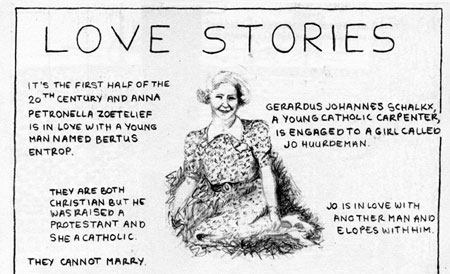 LOVE STORIES
IT'S THE FIRST HALF OF THE
20TH CENTURY AND ANNA
PETRONELLA ZOETELIEF
IS IN LOVE WITH A YOUNG
MAN NAMED BERTUS
ENTROP.
GERARDUS JOHANNES SCHALKX,
A YOUNG CATHOLIC CARPENTER,
IS ENGAGED TO A GIRL CALLED
JO HUURDEMAN.
THEY ARE BOTH
CHRISTIAN BUT HE
WAS RAISED A
PROTESTANT AND
SHE A CATHOLIC.
THEY CANNOT MARRY.
JO IS IN LOVE WITH
ANOTHER MAN AND
ELOPES WITH HIM.